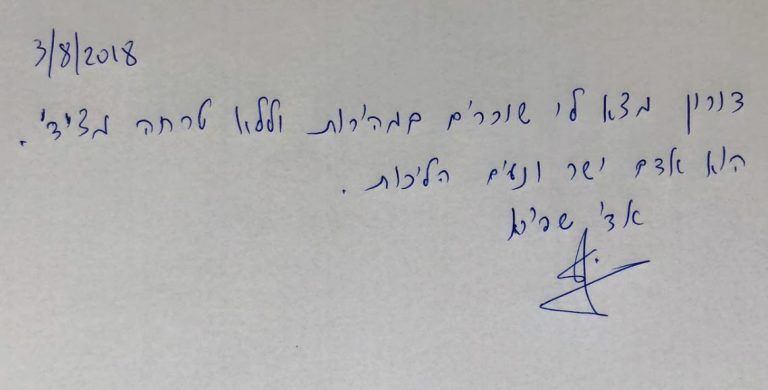 3/8/2018
דורון מצא לי שוכרים במהירות וללא טרחה מצידי.
הוא אדם ישר ונעים הליכות.